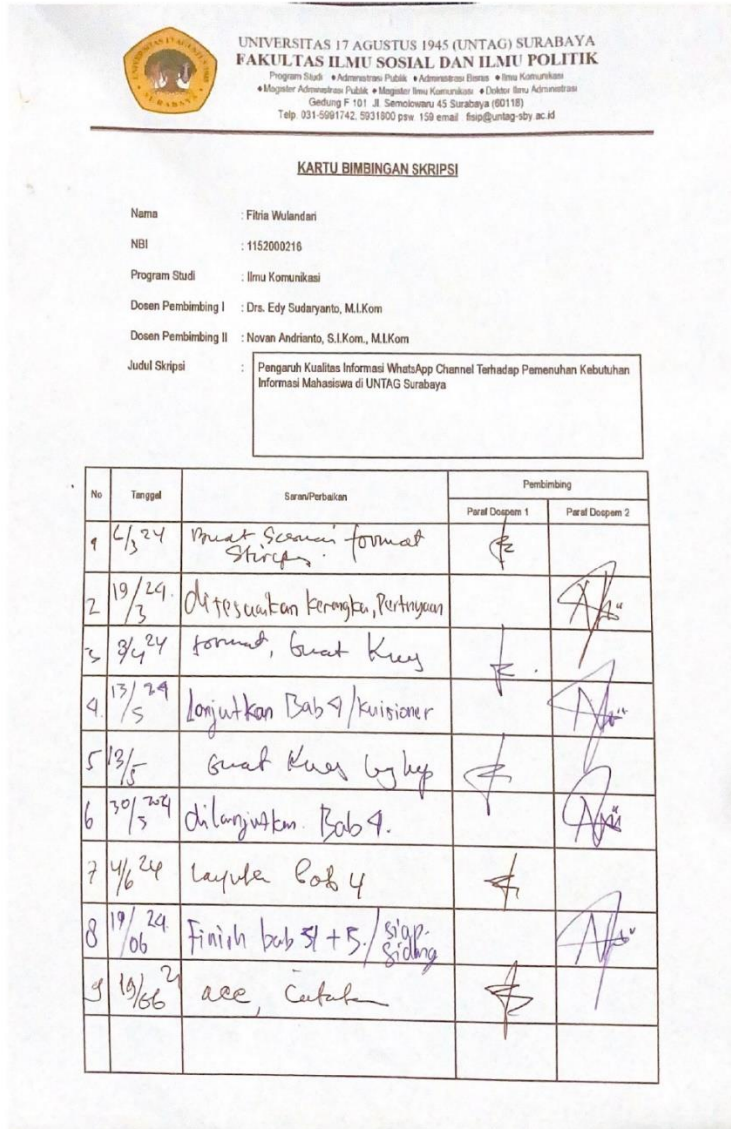 UNIVERSITAS 17 AGUSTUS 1945 (UNTAG) SURABAYA
FAKULTAS ILMU SOSIAL DAN ILMU POLITIK
Program Studi ♦Administrasi Publik ♦Administrasi Bisnis ♦Ilmu Komunikasi
♦Magister Administrasi Publik ♦Magister Ilmu Komunikasi ♦Doktor Ilmu Administrasi
Gedung F 101 Jl. Semolowaru 45 Surabaya (60118)
Telp. 031-5991742, 5931800 psw. 159 email : fisip@untag-sby.ac.id
KARTU BIMBINGAN SKRIPSI
Nama : Fitria Wulandari
NBI : 1152000216
Program Studi : Ilmu Komunikasi
Dosen Pembimbing I : Drs. Edy Sudaryanto, M.I.Kom
Dosen Pembimbing II : Novan Andrianto, S.I.Kom., M.I.Kom
Judul Skripsi : Pengaruh Kualitas Informasi WhatsApp Channel Terhadap Pemenuhan Kebutuhan
Informasi Mahasiswa di UNTAG Surabaya
No Tanggal Saran/Perbaikan Pembimbing
Paraf Dospem 1 Paraf Dospem 2
1 Buat Sesuai format
2 19/3 24. disesuaikan kerangka, Pertanyaan
3 format, buat
4. 13/5 24 Lanjutkan Bab 4/kuisioner
5 13/5 buat
6 30/5 2024 dilanjutkan Bab 4.
7 4/6 24 bab 4
8 19/06 24. Finish bab + 5./siap
sidang
9 19/06 acc,